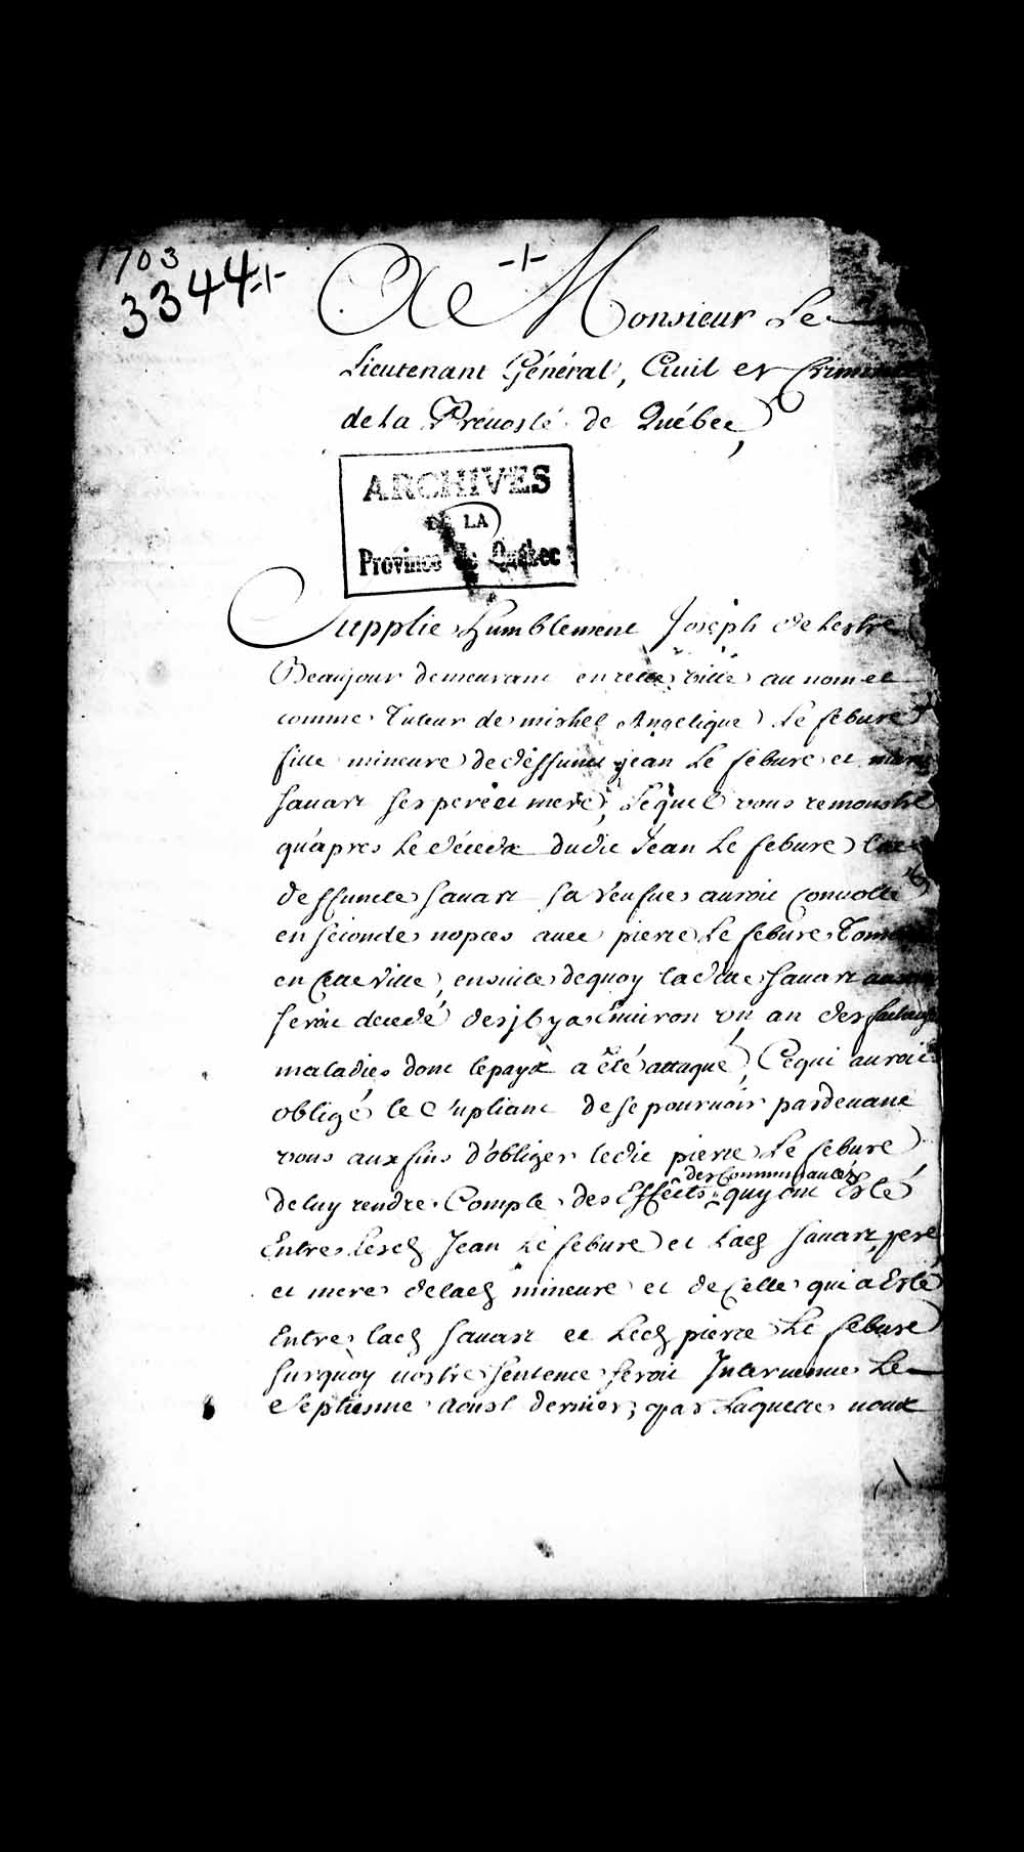 1703
3344 -|-
-|-
A Monsieur Le
Lieutenant Général, Ciuil et Crimin
de la Preuosté de Québec,
ARCHIVES
DE LA
Province de Québec
Supplie humblement Joseph de Lestre
Beaujour demeurant en cette ville au nom et
comme Tuteur de mishel Angelique Le febure
fille mineure de deffunct jean Le febure et marie
sauart ses pere et mere, Lequel vous remonstre
qu'apres Le déceds dudit Jéan Le febure lad
deffuncte sauart sa veufue auroit Conuollé
en seconde nopces auec pierre Le febure
en Cette Ville, ensuite dequoy ladite sauart
seroit decedé desjl y a enuiron un an des
maladies dont le pays a été attaqué, Ce qui auroit
obligé le suppliant de se pouruoir pardeuant
vous aux fins d'obliger ledit pierre Le febure
des Communautéz
de luy rendre Compte des Effets quy ont Esté
Entre lesd Jean Le febure et Lad sauart pere
et mere delad mineure et de Celle qui a Esté
Entre lad sauart et Led pierre Le febure
surquoy vostre sentence seroit Interuenue Le
septiesme Aoust dernier; par Laquelle vous